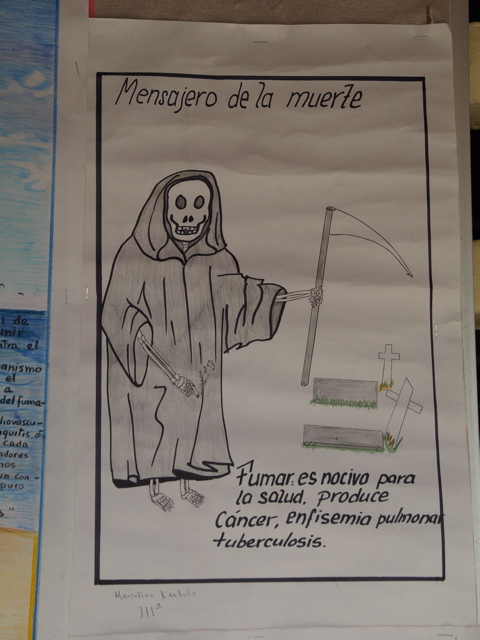 Mensajero de la muerte
Fumar es nocivo para
la salud, produce
Cáncer, enfisemia pulmonar
tuberculosis.
III²
i da
unir
stra el
anismo
el
a
del fuma-
diovascu-
cada
adores
nos
un con-
puro